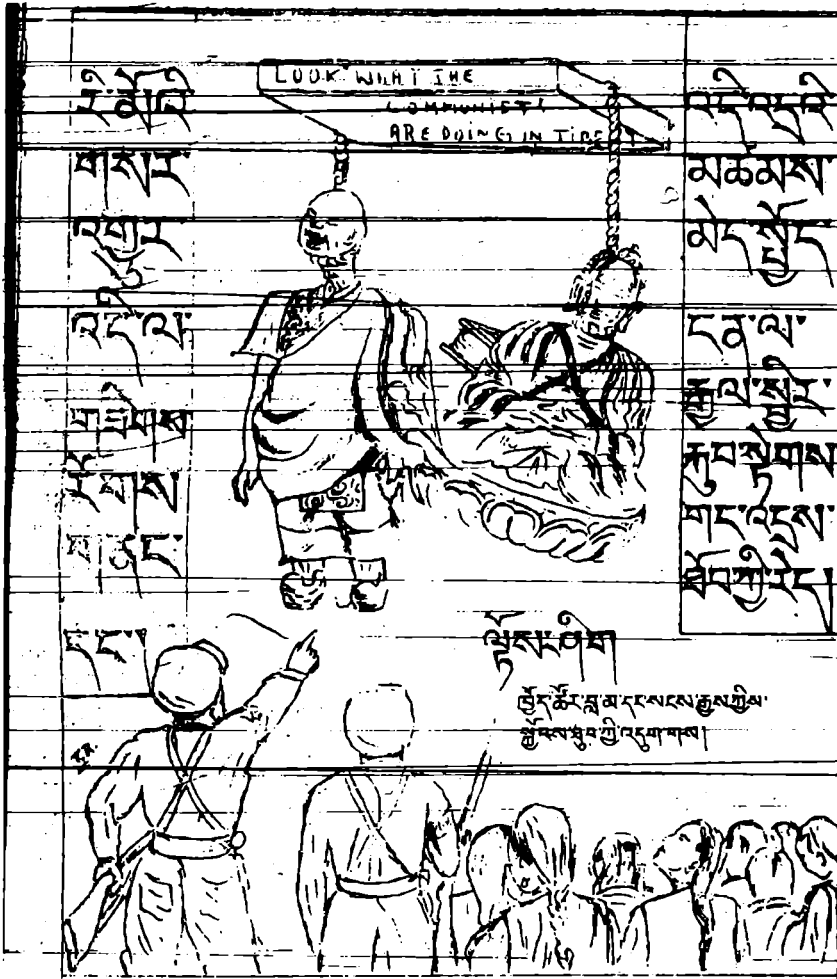 LOOK WHAT THE
COMMUNIST'
ARE DOING IN TIBET
རི་མོའི་
གསར་
འགྱུར་
འདི་ལ་
གཟིགས་
རོགས་
གནང་
དང་།
མཚམས་
མེད་
ངན་ལ་
རྒྱལ་སྤྱིར་
གང་འདྲས་
ལྟོས་དང་ཤིག
ཁྱོད་ཚོར་བླ་མ་དང་སངས་རྒྱས་ཀྱིས་
སྐྱོབས་ཐུབ་ཀྱི་འདུག་གས།